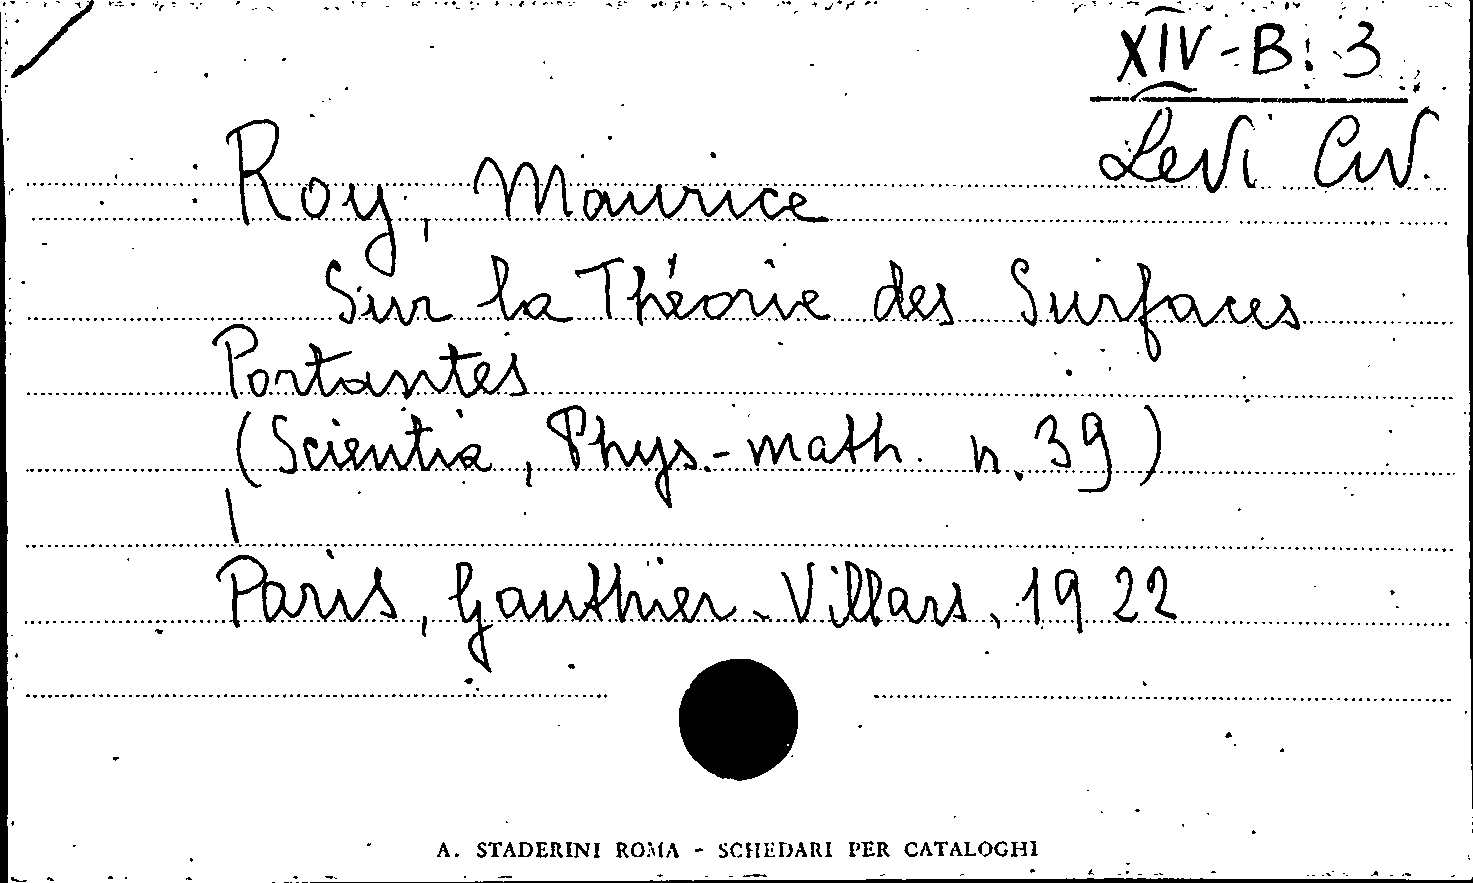 XIV-B. 3
Levi Civ.
Roy, Maurice
Sur la Théorie des Surfaces
Portantes
(Scientia, Phys.-math. n. 39)
Paris, Gauthier-Villars, 1922
A. STADERINI ROMA - SCHEDARI PER CATALOGHI